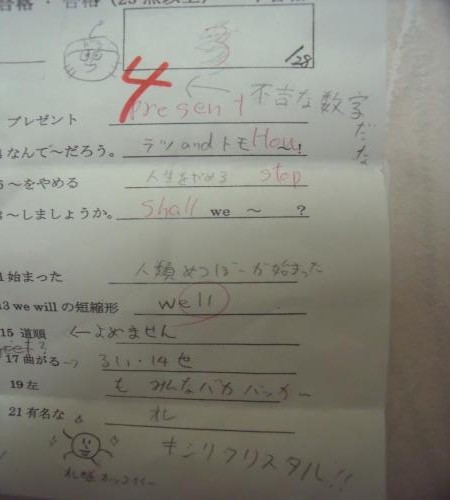 合格・合格（25点以上）・不合格
/28
4
← 不吉な数字だな
プレゼント present
なんで～だろう。 テツ and トモ How ～!
～をやめる 人生をやめる stop
～しましょうか。 Shall we ～ ?
始まった 人類めつぼーが始まった
13 we will の短縮形 well
15 道順 ←よめません
17 曲がる→ るい・14せ
19 左 も みんなバカバッカー
21 有名な オレ
キシリクリスタル!!